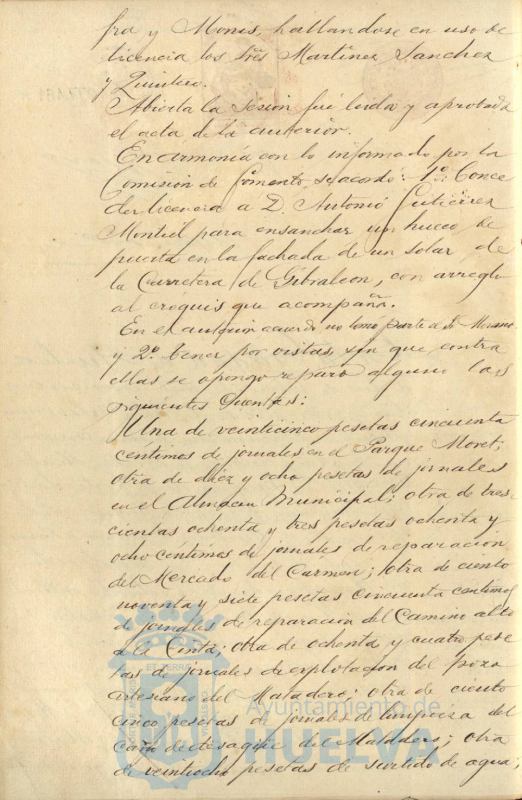 fra y Monis, hallandose en uso de
licencia los Sres Martinez Sanchez
y Quintero.
Abierta la sesion fué leida y aprobada
el acta de la anterior.
En armonía con lo informado por la
Comisión de Fomento, se acordó: 1º: Conce
der licencia a D. Antonio Gutiérrez
Montiel para ensanchar un hueco de
puerta en la fachada de un solar de
la Carretera de Gibraleon, con arreglo
al croquis que acompaña.
En el acuerdo no tomó parte el Sr Moreno
y 2º tener por vistas, sin que contra
ellas se oponga reparo alguno las
siguientes Cuentas:
Una de veinticinco pesetas cincuenta
céntimos de jornales en el Parque Moret;
otra de diez y ocho pesetas de jornales
en el Almacen Municipal; otra de tres
cientas ochenta y tres pesetas ochenta y
ocho céntimos de jornales de reparacion
del Mercado del Carmen; otra de ciento
noventa y siete pesetas cincuenta centimos
de jornales de reparación del Camino alto
de la Cinta; otra de ochenta y cuatro pese
tas de jornales de explotacion del pozo
artesiano del Matadero; otra de ciento
cinco pesetas de jornales de limpieza del
caño de desagüe del Matadero; otra
de veintiocho pesetas de surtido de agua;
Ayuntamiento de
HUELVA